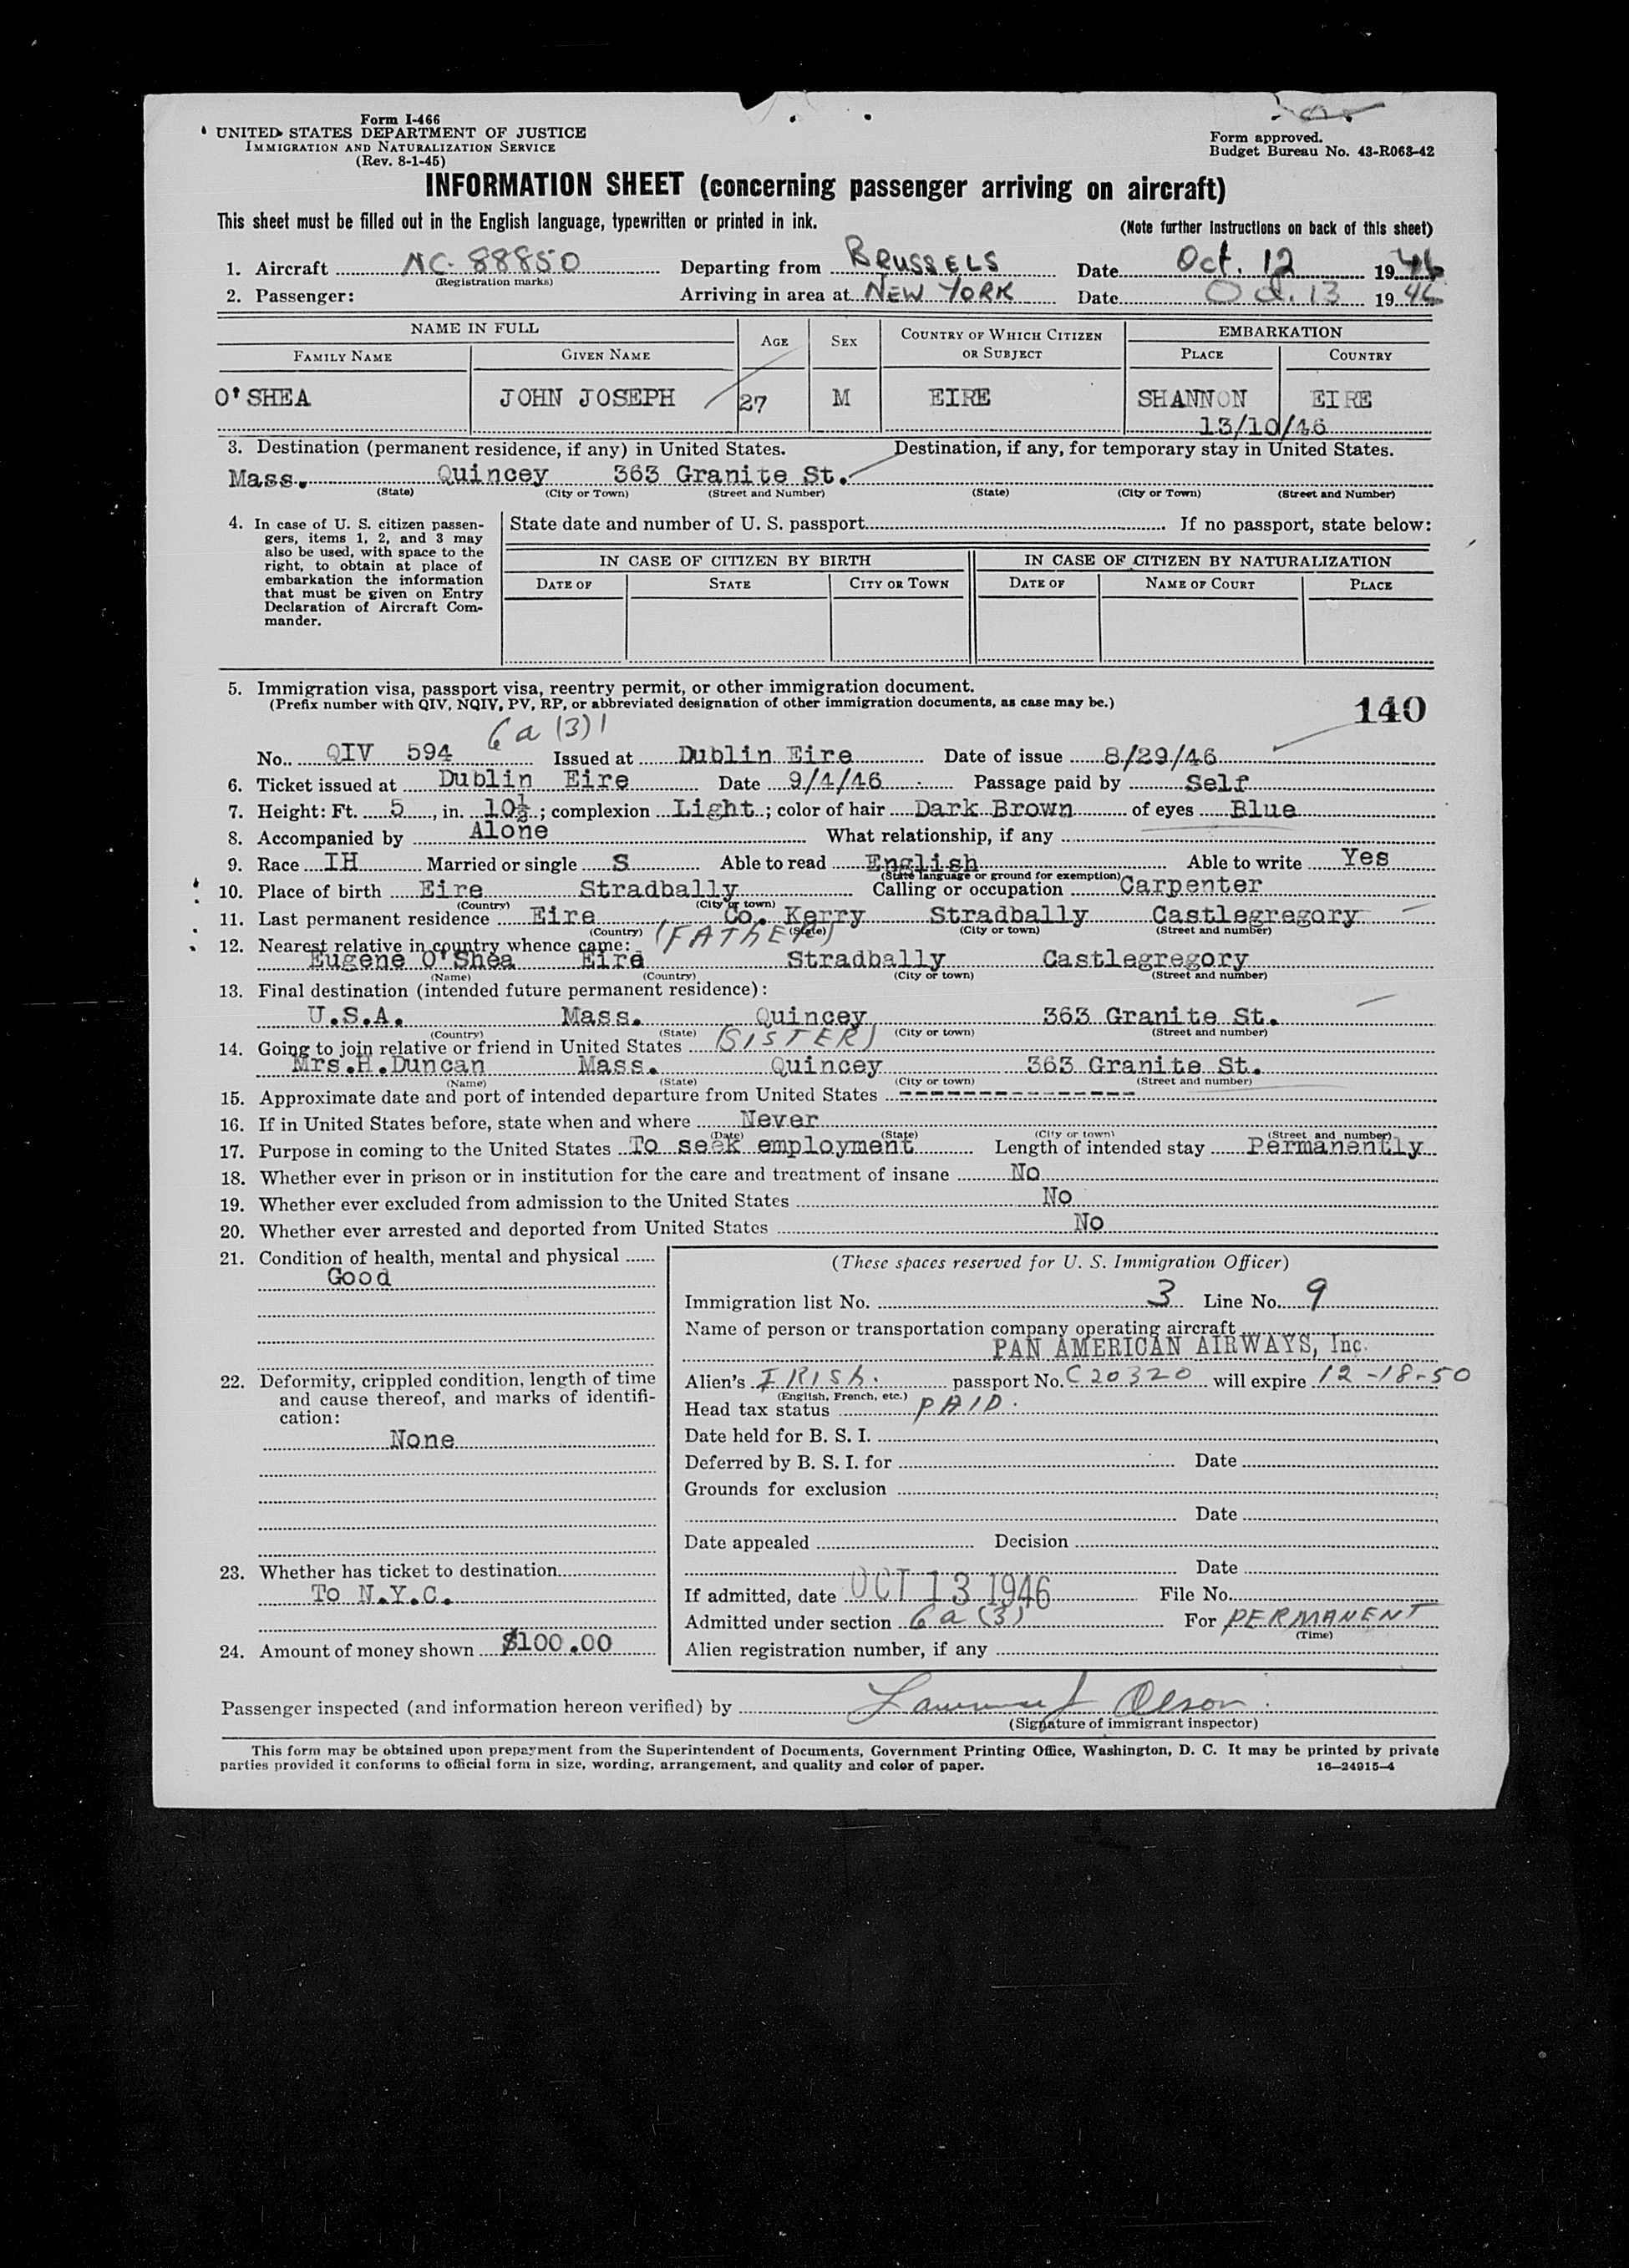 Form I-466
UNITED STATES DEPARTMENT OF JUSTICE
IMMIGRATION AND NATURALIZATION SERVICE
(Rev. 8-1-45)
Form approved.
Budget Bureau No. 43-R063-42
INFORMATION SHEET (concerning passenger arriving on aircraft)
This sheet must be filled out in the English language, typewritten or printed in ink. (Note further instructions on back of this sheet)
1. Aircraft NC-88850 Departing from BRUSSELS Date Oct. 12 1946
(Registration marks)
2. Passenger: Arriving in area at NEW YORK Date Oct. 13 1946
NAME IN FULL AGE SEX COUNTRY OF WHICH CITIZEN OR SUBJECT EMBARKATION
FAMILY NAME GIVEN NAME PLACE COUNTRY
O'SHEA JOHN JOSEPH 27 M EIRE SHANNON EIRE
13/10/46
3. Destination (permanent residence, if any) in United States. Destination, if any, for temporary stay in United States.
Mass. Quincey 363 Granite St.
(State) (City or Town) (Street and Number) (State) (City or Town) (Street and Number)
4. In case of U. S. citizen passen-
gers, items 1, 2, and 3 may
also be used, with space to the
right, to obtain at place of
embarkation the information
that must be given on Entry
Declaration of Aircraft Com-
mander.
State date and number of U. S. passport If no passport, state below:
IN CASE OF CITIZEN BY BIRTH IN CASE OF CITIZEN BY NATURALIZATION
DATE OF STATE CITY OR TOWN DATE OF NAME OF COURT PLACE
5. Immigration visa, passport visa, reentry permit, or other immigration document.
(Prefix number with QIV, NQIV, PV, RP, or abbreviated designation of other immigration documents, as case may be.)
140
6a (3)
No. QIV 594 Issued at Dublin Eire Date of issue 8/29/46
6. Ticket issued at Dublin Eire Date 9/4/46 Passage paid by Self
7. Height: Ft. 5, in. 10½; complexion Light; color of hair Dark Brown of eyes Blue
8. Accompanied by Alone What relationship, if any
9. Race IH Married or single S Able to read English Able to write Yes
(State language or ground for exemption)
10. Place of birth Eire Stradbally Calling or occupation Carpenter
(Country) (City or town)
11. Last permanent residence Eire Co. Kerry Stradbally Castlegregory
(Country) (State) (City or town) (Street and number)
12. Nearest relative in country whence came: (FATHER)
Eugene O'Shea Eire Stradbally Castlegregory
(Name) (Country) (City or town) (Street and number)
13. Final destination (intended future permanent residence):
U.S.A. Mass. Quincey 363 Granite St.
(Country) (State) (City or town) (Street and number)
14. Going to join relative or friend in United States (SISTER)
Mrs.H.Duncan Mass. Quincey 363 Granite St.
(Name) (State) (City or town) (Street and number)
15. Approximate date and port of intended departure from United States ----------------
16. If in United States before, state when and where Never
(Date) (State) (City or town) (Street and number)
17. Purpose in coming to the United States To seek employment Length of intended stay Permanently
18. Whether ever in prison or in institution for the care and treatment of insane No
19. Whether ever excluded from admission to the United States No
20. Whether ever arrested and deported from United States No
21. Condition of health, mental and physical
Good
22. Deformity, crippled condition, length of time
and cause thereof, and marks of identifi-
cation:
None
23. Whether has ticket to destination
To N.Y.C.
24. Amount of money shown $100.00
(These spaces reserved for U. S. Immigration Officer)
Immigration list No. 3 Line No. 9
Name of person or transportation company operating aircraft
PAN AMERICAN AIRWAYS, Inc.
Alien's IRISH. passport No. C20320 will expire 12-18-50
(English, French, etc.)
Head tax status PAID.
Date held for B. S. I.
Deferred by B. S. I. for Date
Grounds for exclusion
Date
Date appealed Decision
Date
If admitted, date OCT 13 1946 File No.
Admitted under section 6a (3) For PERMANENT
(Time)
Alien registration number, if any
Passenger inspected (and information hereon verified) by Lawrence J Olson
(Signature of immigrant inspector)
This form may be obtained upon prepayment from the Superintendent of Documents, Government Printing Office, Washington, D. C. It may be printed by private
parties provided it conforms to official form in size, wording, arrangement, and quality and color of paper. 16—24915-4